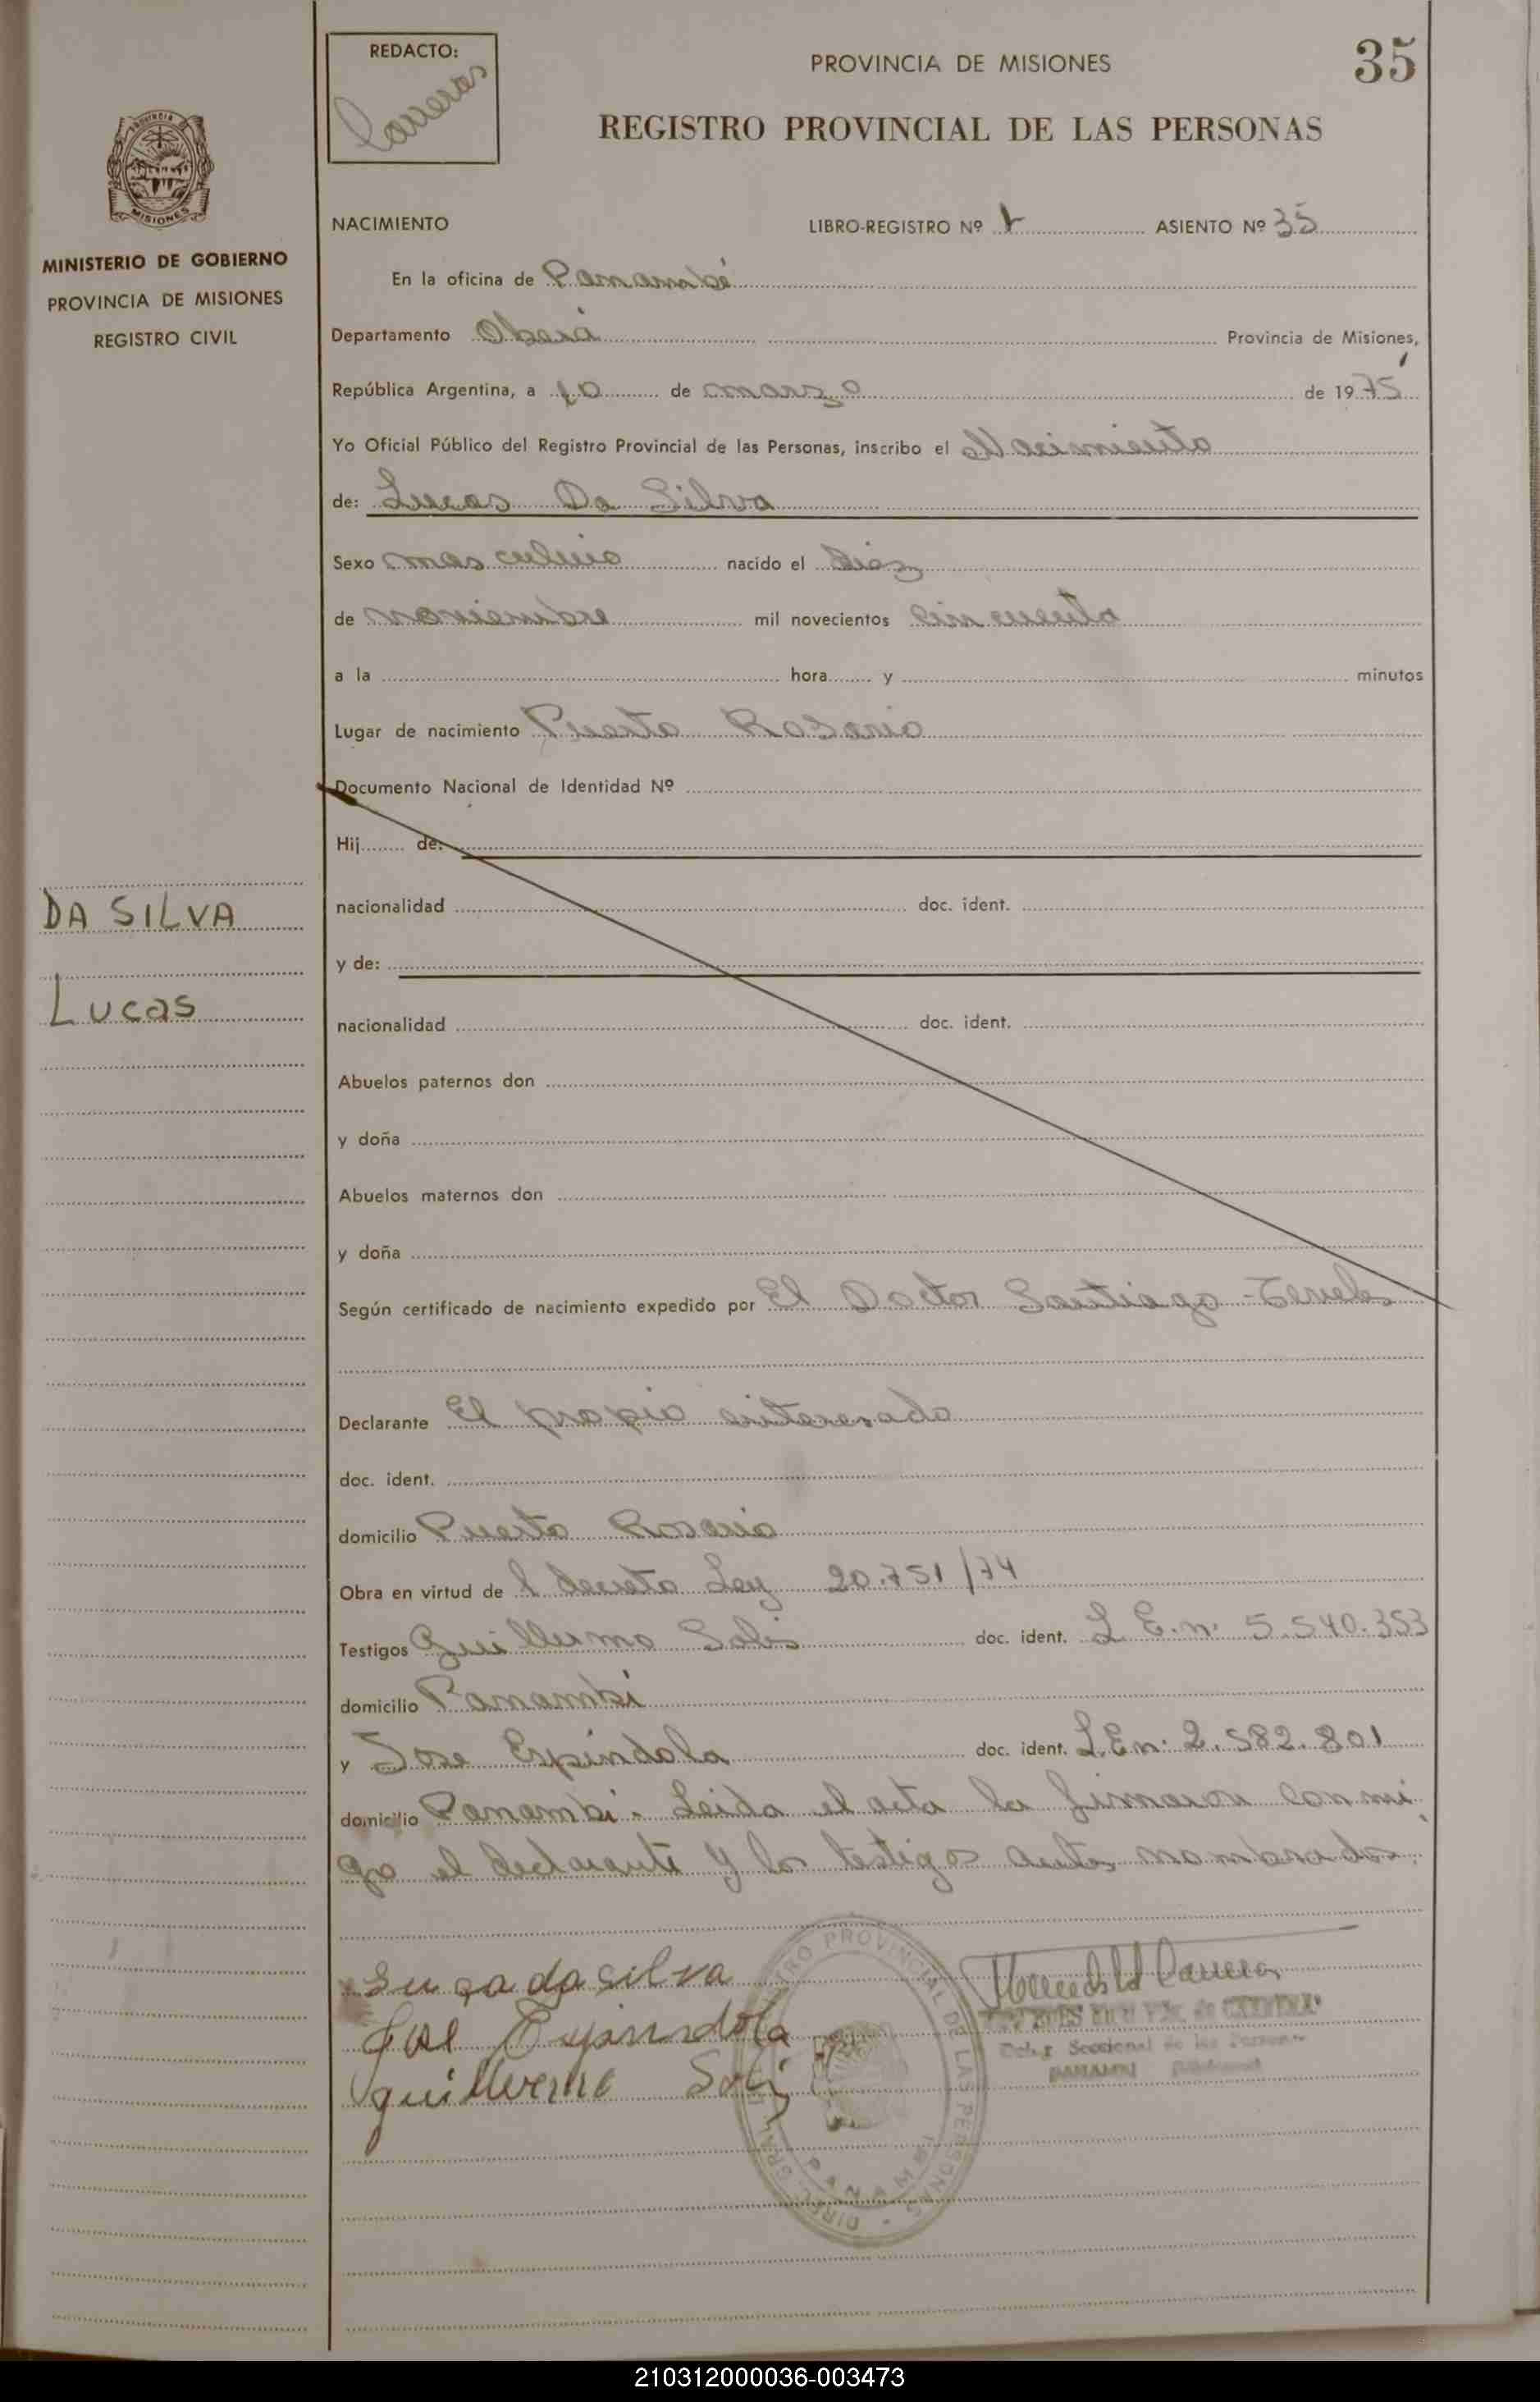 REDACTO:
Carreras
PROVINCIA DE MISIONES
35
REGISTRO PROVINCIAL DE LAS PERSONAS
PROVINCIA
MISIONES
MINISTERIO DE GOBIERNO
PROVINCIA DE MISIONES
REGISTRO CIVIL
NACIMIENTO LIBRO-REGISTRO Nº 1 ASIENTO Nº 35
En la oficina de Panambí
Departamento Oberá Provincia de Misiones,
República Argentina, a 10 de marzo de 1975
Yo Oficial Público del Registro Provincial de las Personas, inscribo el Nacimiento
de: Lucas Da Silva
Sexo masculino nacido el diez
de noviembre mil novecientos cincuenta
a la hora y minutos
Lugar de nacimiento Puerto Rosario
Documento Nacional de Identidad Nº
Hij de:
DA SILVA
nacionalidad doc. ident.
y de:
Lucas
nacionalidad doc. ident.
Abuelos paternos don
y doña
Abuelos maternos don
y doña
Según certificado de nacimiento expedido por El Doctor Santiago
Declarante El propio interesado
doc. ident.
domicilio Puerto Rosario
Obra en virtud de l decreto Ley 20.751/74
Testigos Guillermo Solis doc. ident. L.E.n. 5.540.353
domicilio Panambí
y Jose Espindola doc. ident. L.E.n. 2.582.801
domicilio Panambi. Leida el acta la firmaron conmi
go el declarante y los testigos antes nombrados.
Lucadasilva
José Espindola
guillermo Solis
REGISTRO PROVINCIAL DE LAS PERSONAS
PANAMBI
210312000036-003473